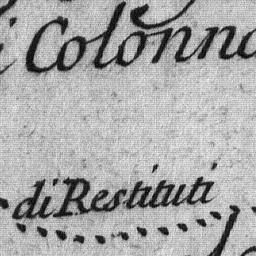 i Colonna
di Restituti